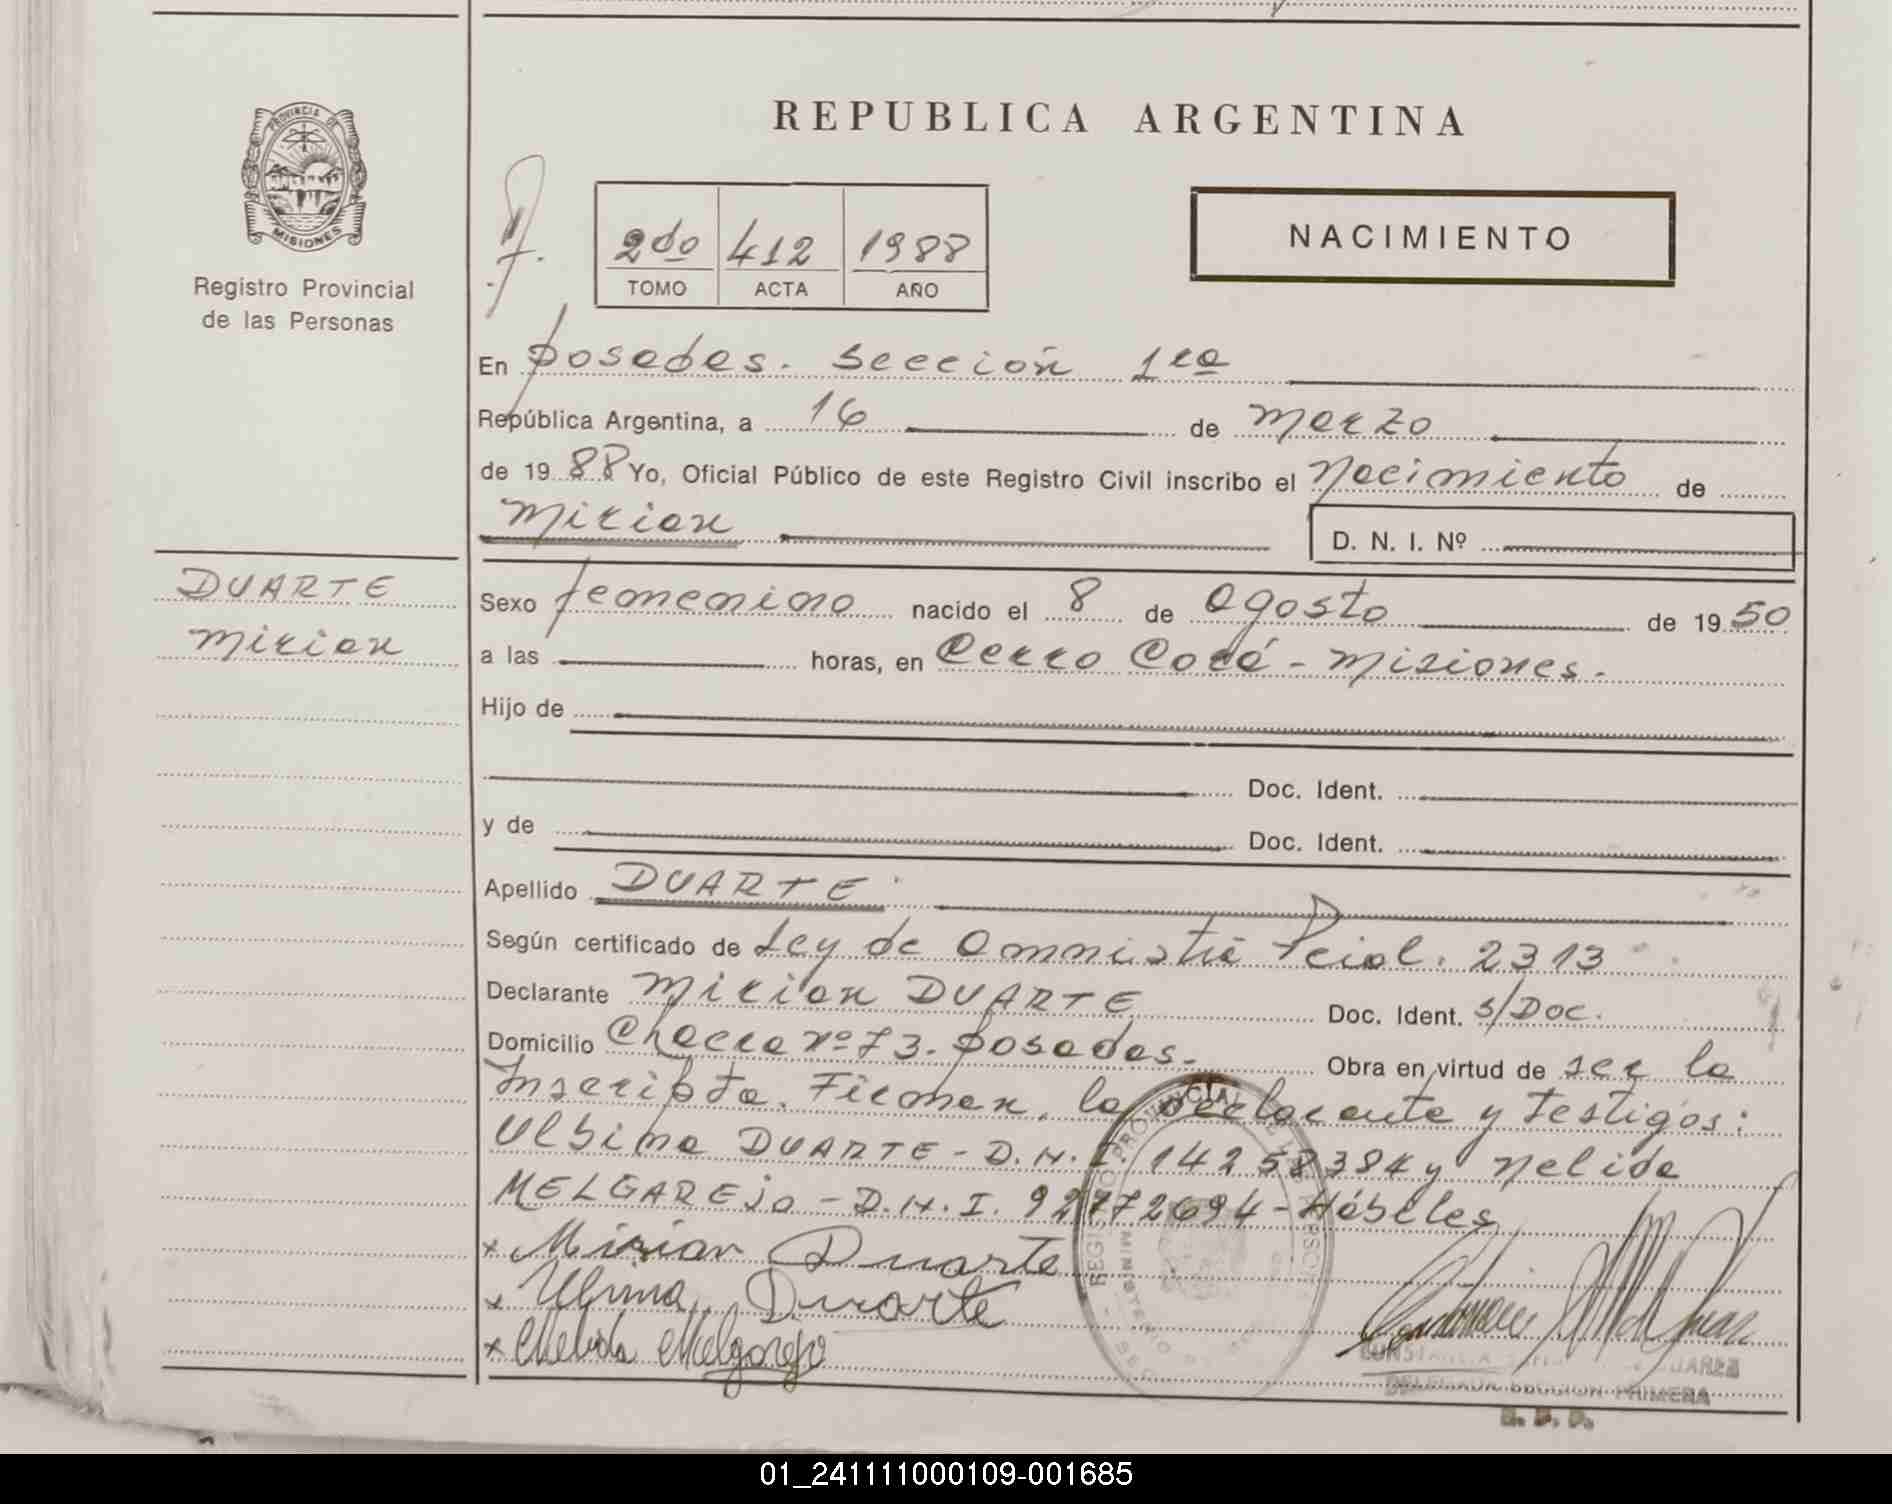 PROVINCIA DE
MISIONES
Registro Provincial
de las Personas
REPUBLICA ARGENTINA
NACIMIENTO
2do 412 1988
TOMO ACTA AÑO
En Posadas. Sección 1ra
República Argentina, a 16 de Marzo
de 1988 Yo, Oficial Público de este Registro Civil inscribo el Nacimiento de
Mirian D. N. I. Nº
DUARTE
Mirian
Sexo femenino nacido el 8 de Agosto de 1950
a las horas, en Cerro Corá - Misiones.
Hijo de
Doc. Ident.
y de Doc. Ident.
Apellido DUARTE
Según certificado de Ley de Amnistia Pcial. 2313
Declarante Mirian DUARTE Doc. Ident. S/Doc.
Domicilio Chacra nº 73. Posadas. Obra en virtud de ser la
Inscripta. Firman, la declarante y testigos:
Albina DUARTE - D.N.I. 14258384 y Nelida
MELGAREJo - D.N.I. 92772694 - Hábiles
x Mirian Duarte
x Albina Duarte
x Nelida Melgarejo
REGISTRO PROVINCIAL DE LAS PERSONAS
MINISTERIO DE
JUAREZ
DELEGADA SECCION PRIMERA
R. P. P.
01_241111000109-001685